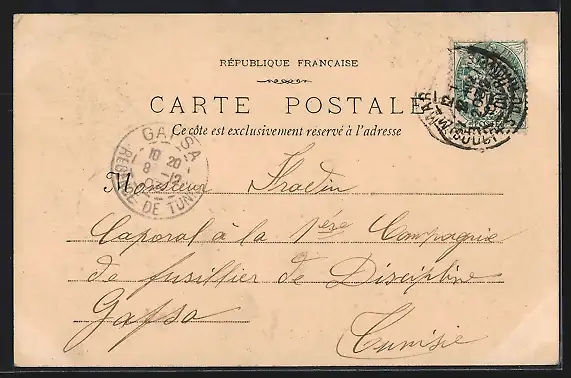 RÉPUBLIQUE FRANÇAISE
CARTE POSTALE
Ce côte est exclusivement reservé à l'adresse
GAFSA
10 20
8 12
REGENCE DE TUNIS
Monsieur
Caporal à la 1ère Compagnie
de fusillier de Discipline
Gafsa
Tunisie